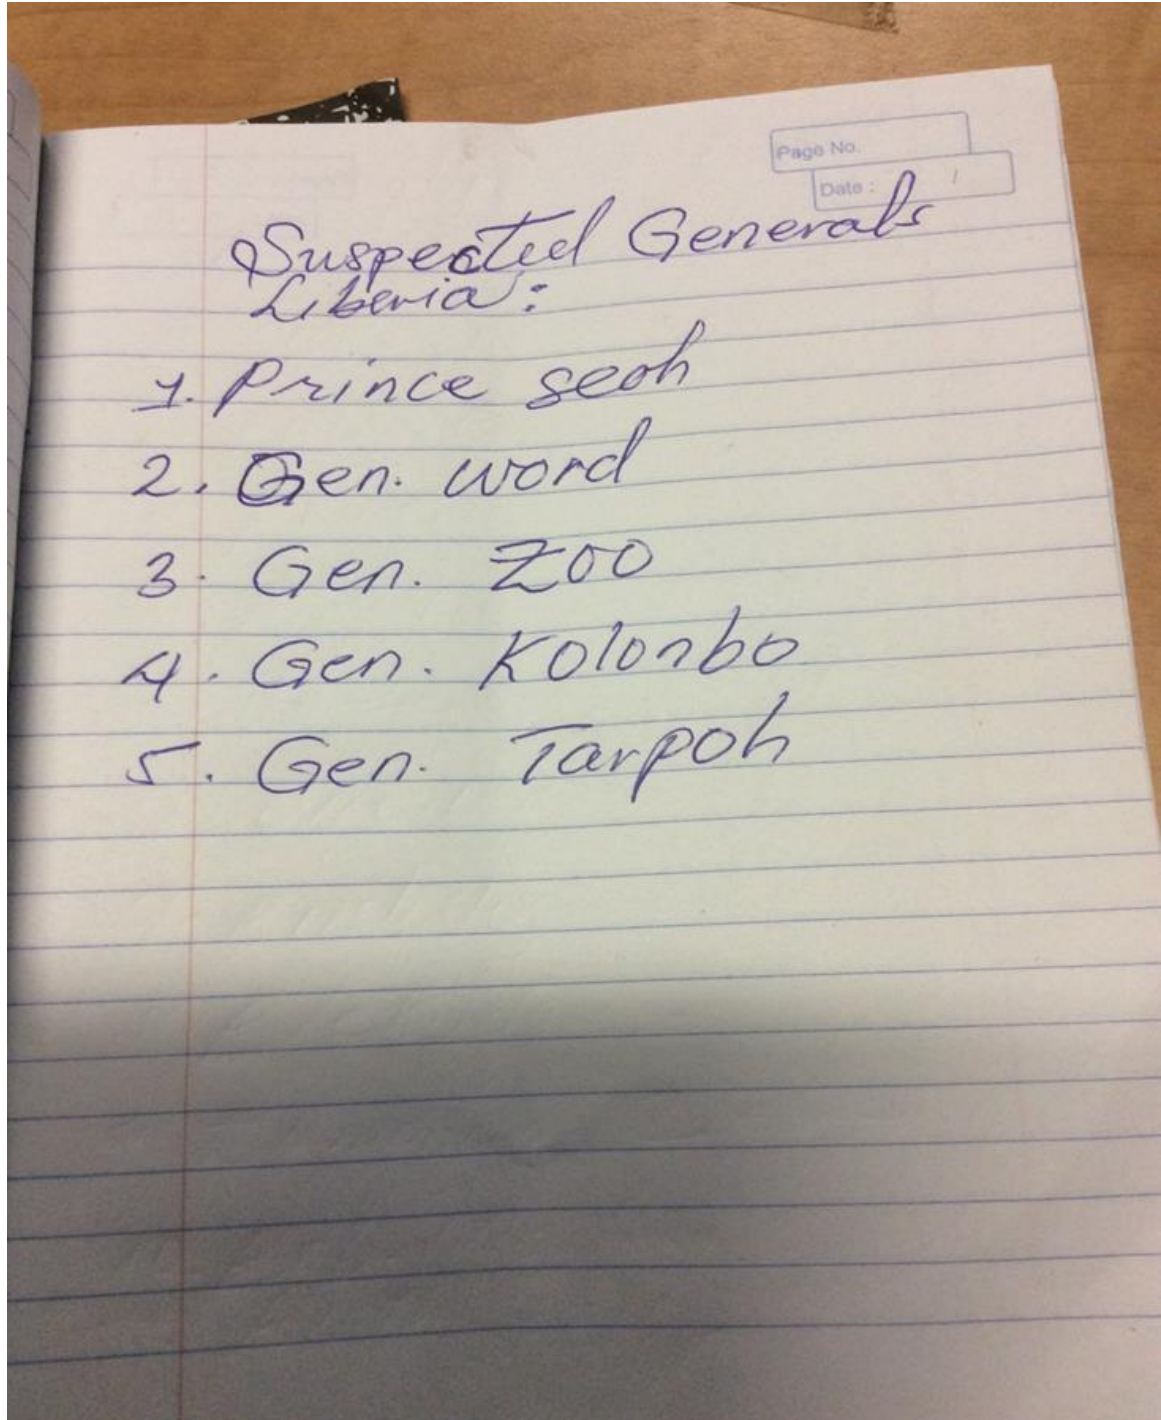 Page No.
Date :
Suspected Generals
Liberia:
1. Prince seoh
2. Gen. word
3. Gen. Zoo
4. Gen. Kolonbo
5. Gen. Tarpoh